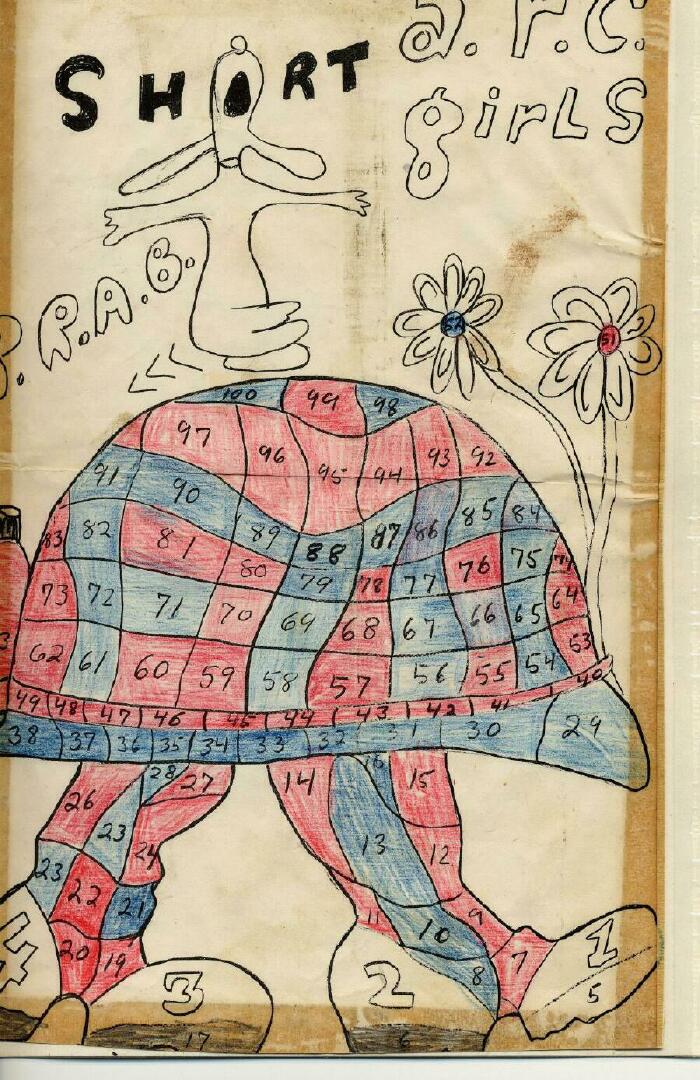 SHORT
girLS
R.A.B.
52 51
100 99 98
97 96 95 94 93 92
91 90 89 88 87 86 85 84
83 82 81 80 79 78 77 76 75 74
73 72 71 70 69 68 67 66 65 64
62 61 60 59 58 57 56 55 54 53
49 48 47 46 45 44 43 42 41 40
38 37 36 35 34 33 32 31 30 29
28 27 14 16 15
26 23 24 13 12
23 22 21 11 10 9
20 19 8 7
4 3 2 1
17 6 5